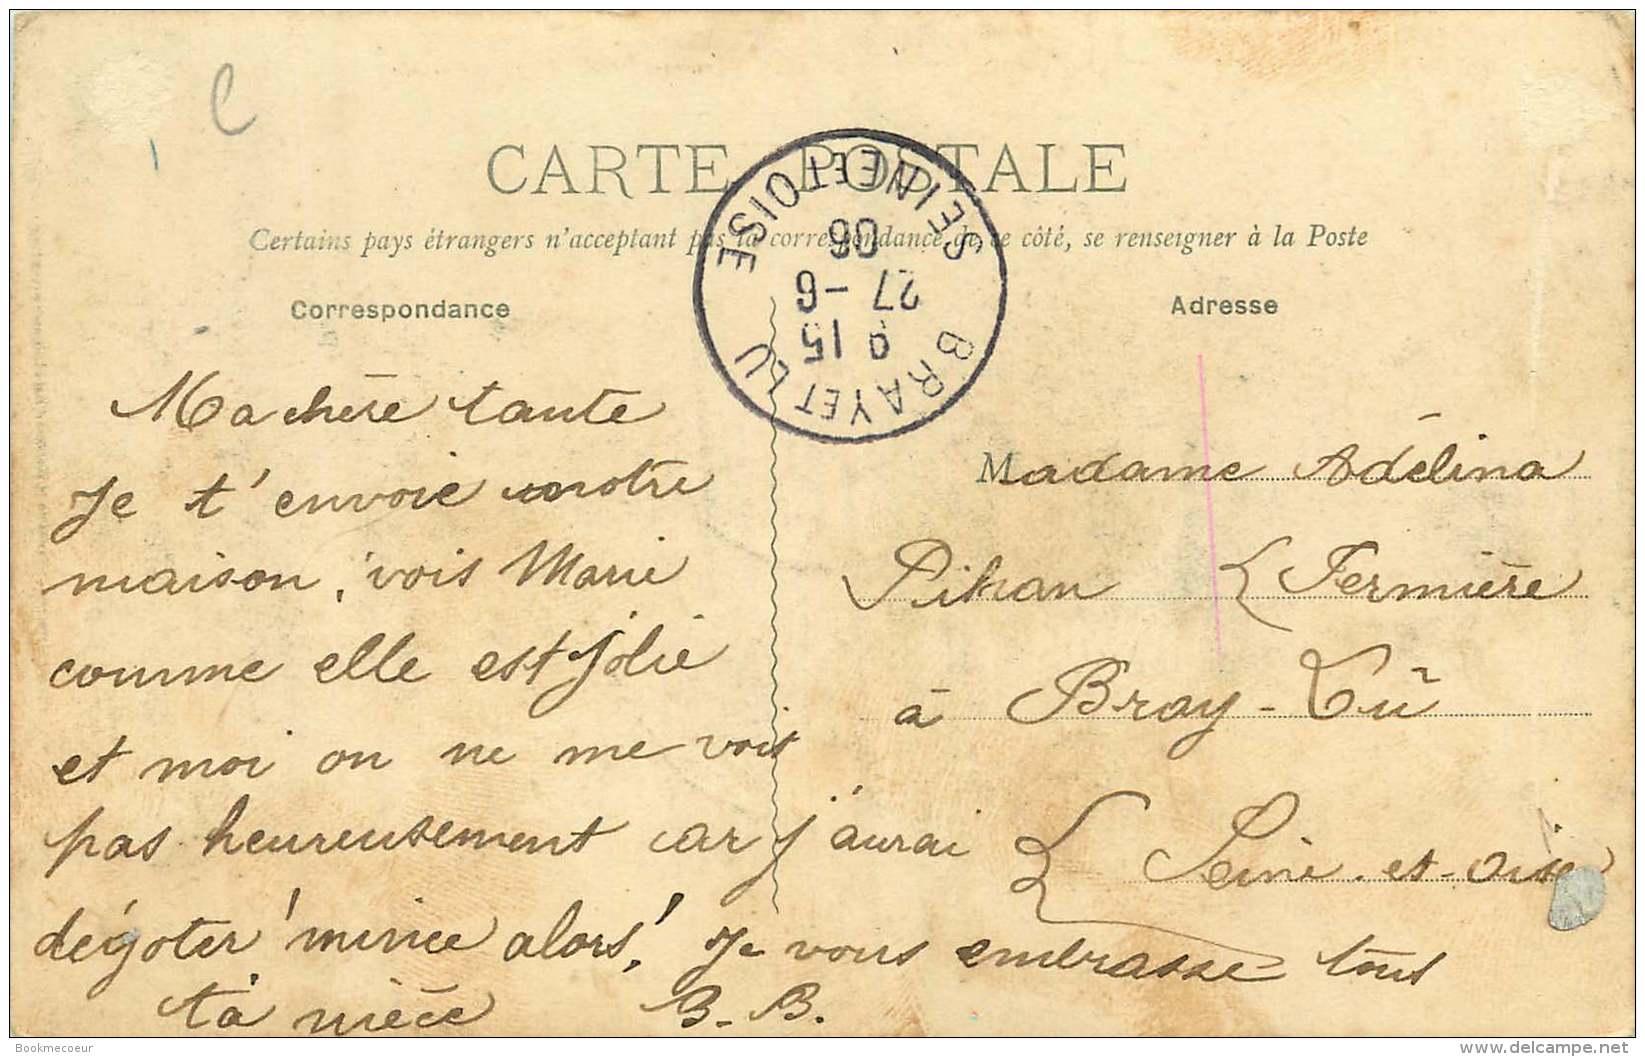 CARTE POSTALE
Certains pays étrangers n'acceptant pas la correspondance de ce côté, se renseigner à la Poste
SEINE ET OISE
06
27 - 6
9 15
BRAY ET LU
Correspondance
Adresse
Ma chère tante
Je t'envoie notre
maison, vois Marie
comme elle est jolie
et moi on ne me vois
pas heureusement car j'aurai
dégoter! mince alors! Je vous embrasse tous
ta nièce B. B.
Madame Adélina
Pihan Fermière
à Bray-Lû
Seine-et-Oise
Bookmecoeur
delcampe.net